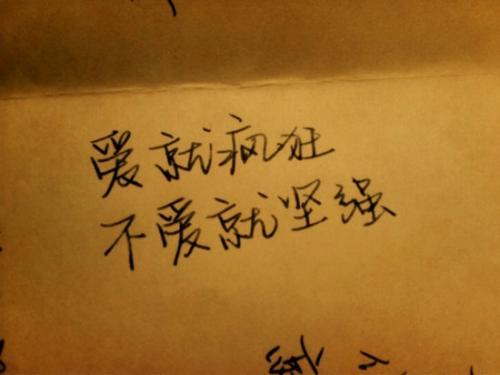 爱就疯狂
不爱就坚强